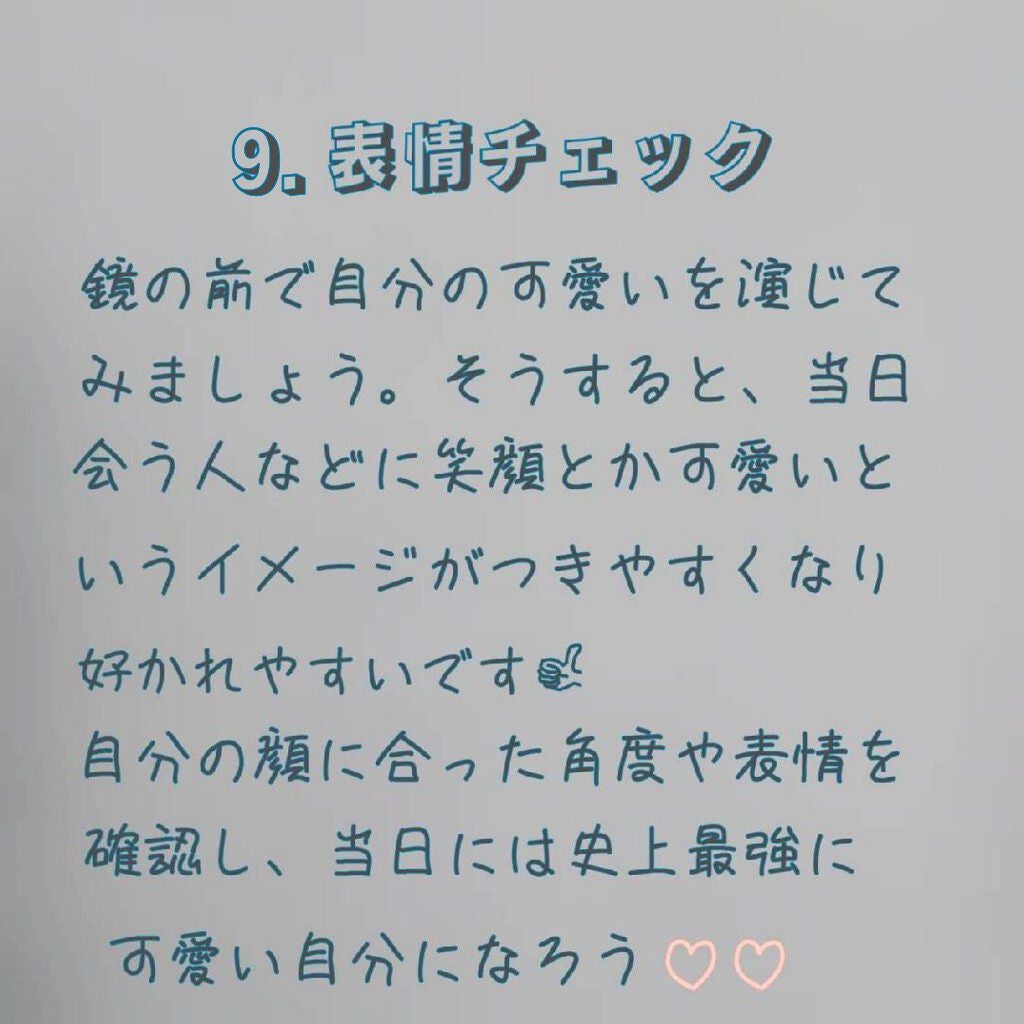 9. 表情チェック
鏡の前で自分の可愛いを演じて
みましょう。そうすると、当日
会う人などに笑顔とか可愛いと
いうイメージがつきやすくなり
好かれやすいです👍
自分の顔に合った角度や表情を
確認し、当日には史上最強に
可愛い自分になろう♡♡